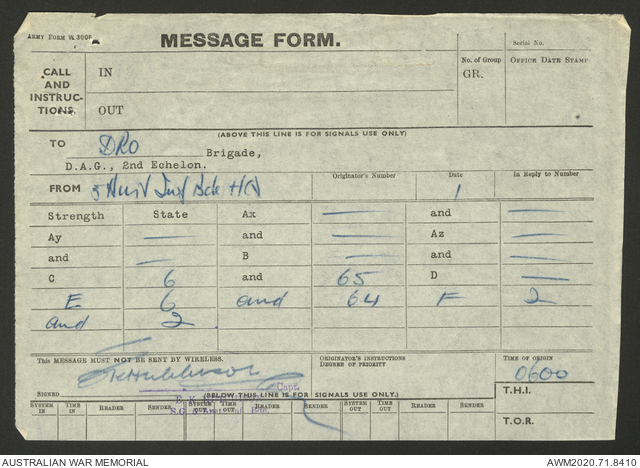 ARMY FORM W.3008
MESSAGE FORM.
Serial No.
CALL AND INSTRUCTIONS
IN
No. of Group
GR.
OFFICE DATE STAMP
OUT
(ABOVE THIS LINE IS FOR SIGNALS USE ONLY)
TO DRO Brigade,
D.A.G., 2nd Echelon.
FROM Aust Inf Bde HQ
Originator's Number
Date
1
In Reply to Number
Strength State Ax — and —
Ay — and — Az —
and — B — and —
C 6 and 65 D —
E 6 and 64 F 2
and 2
THIS MESSAGE MUST NOT BE SENT BY WIRELESS.
ORIGINATOR'S INSTRUCTIONS
DEGREE OF PRIORITY
TIME OF ORIGIN
0600
Capt.
SIGNED
(BELOW THIS LINE IS FOR SIGNALS USE ONLY.)
T.H.I.
SYSTEM IN TIME IN READER SENDER SYSTEM OUT TIME OUT READER SENDER SYSTEM OUT TIME OUT READER SENDER
T.O.R.
AUSTRALIAN WAR MEMORIAL
AWM2020.71.8410